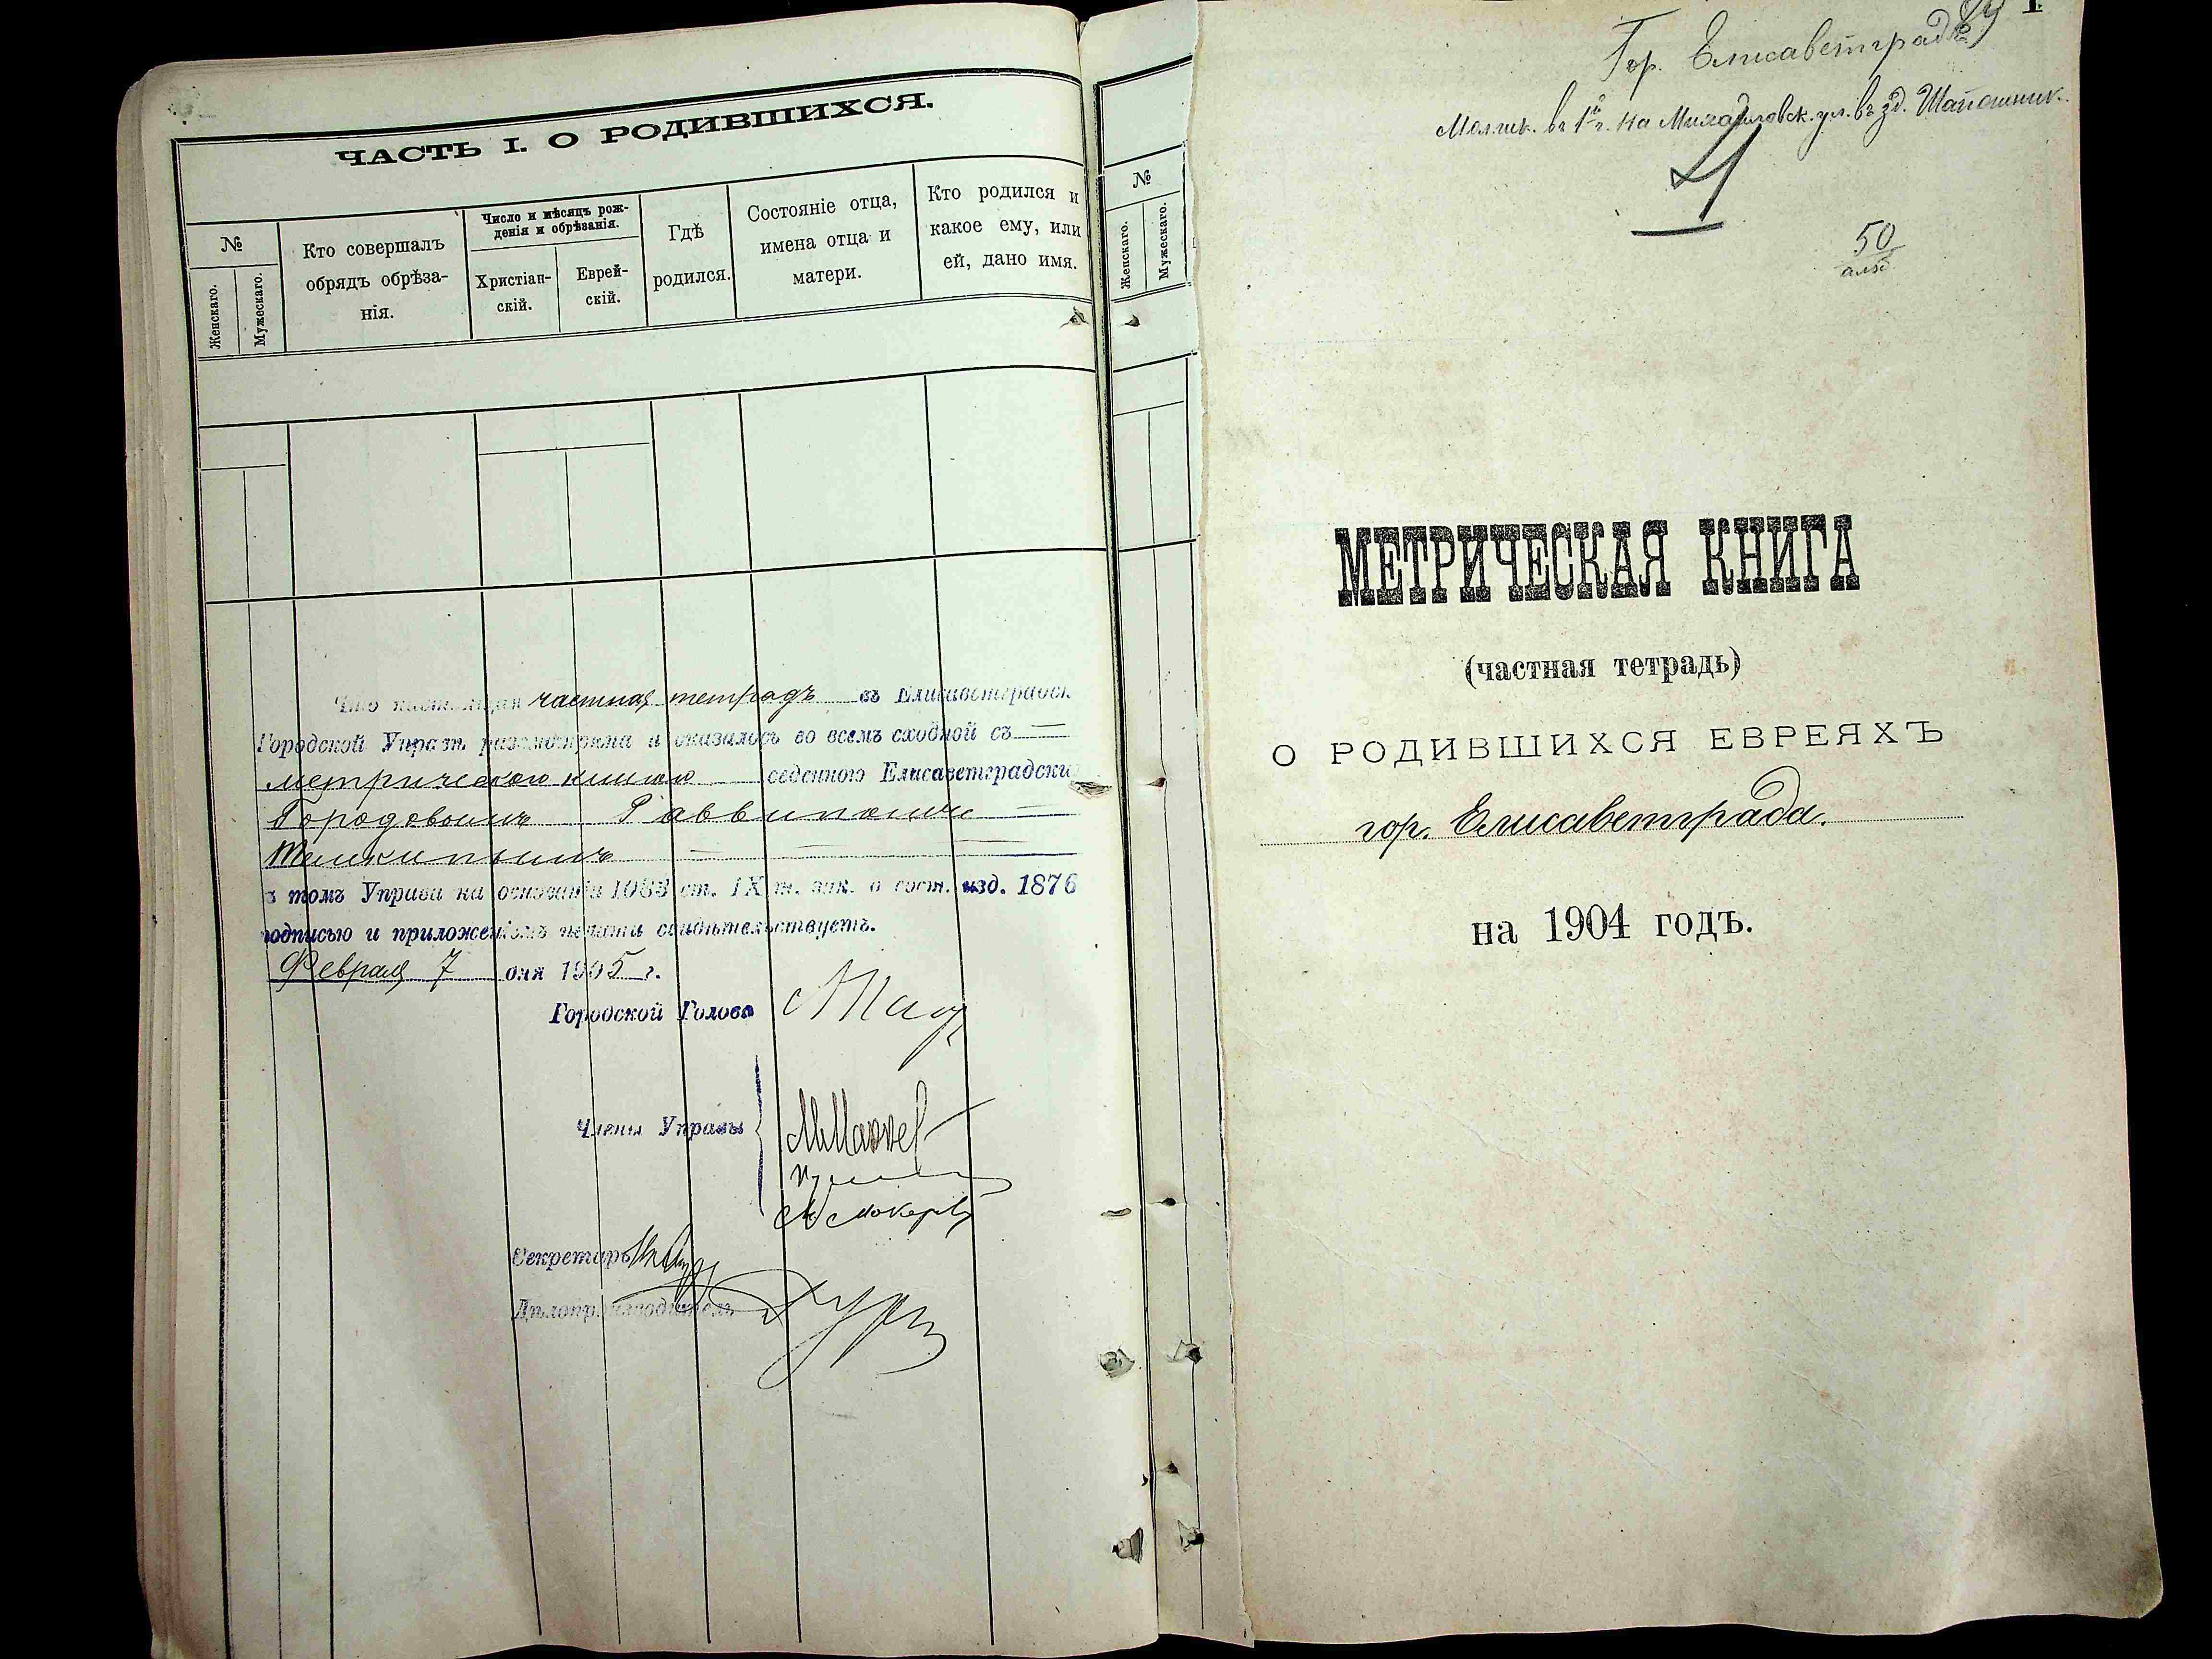 ЧАСТЬ I. О РОДИВШИХСЯ.
№
Женскаго.
Мужескаго.
Кто совершалъ
обрядъ обрѣза-
нія.
Число и мѣсяцъ рож-
денія и обрѣзанія.
Христіан-
скій.
Еврей-
скій.
Гдѣ
родился.
Состояніе отца,
имена отца и
матери.
Кто родился и
какое ему, или
ей, дано имя.
Что настоящая частная тетрадь въ Елисаветградск
Городской Управѣ разсмотрѣна и оказалось во всемъ сходной съ
метрическою книгою веденною Елисаветградски
Городовымъ Раввиномъ
въ томъ Управа на основаніи 1083 ст. IX т. зак. о сост. изд. 1876
подписью и приложеніемъ печати свидѣтельствуетъ.
Февраля 7 дня 1905 г.
Городской Голова
Члены Управы
Секретарь
Дѣлопроизводитель
№
Женскаго.
Мужескаго.
Гор. Елисаветградъ
Молит. въ 1й ч. на Михайловск. ул. въ зд.
4
50
МЕТРИЧЕСКАЯ КНИГА
(частная тетрадь)
О РОДИВШИХСЯ ЕВРЕЯХЪ
гор. Елисаветграда.
на 1904 годъ.